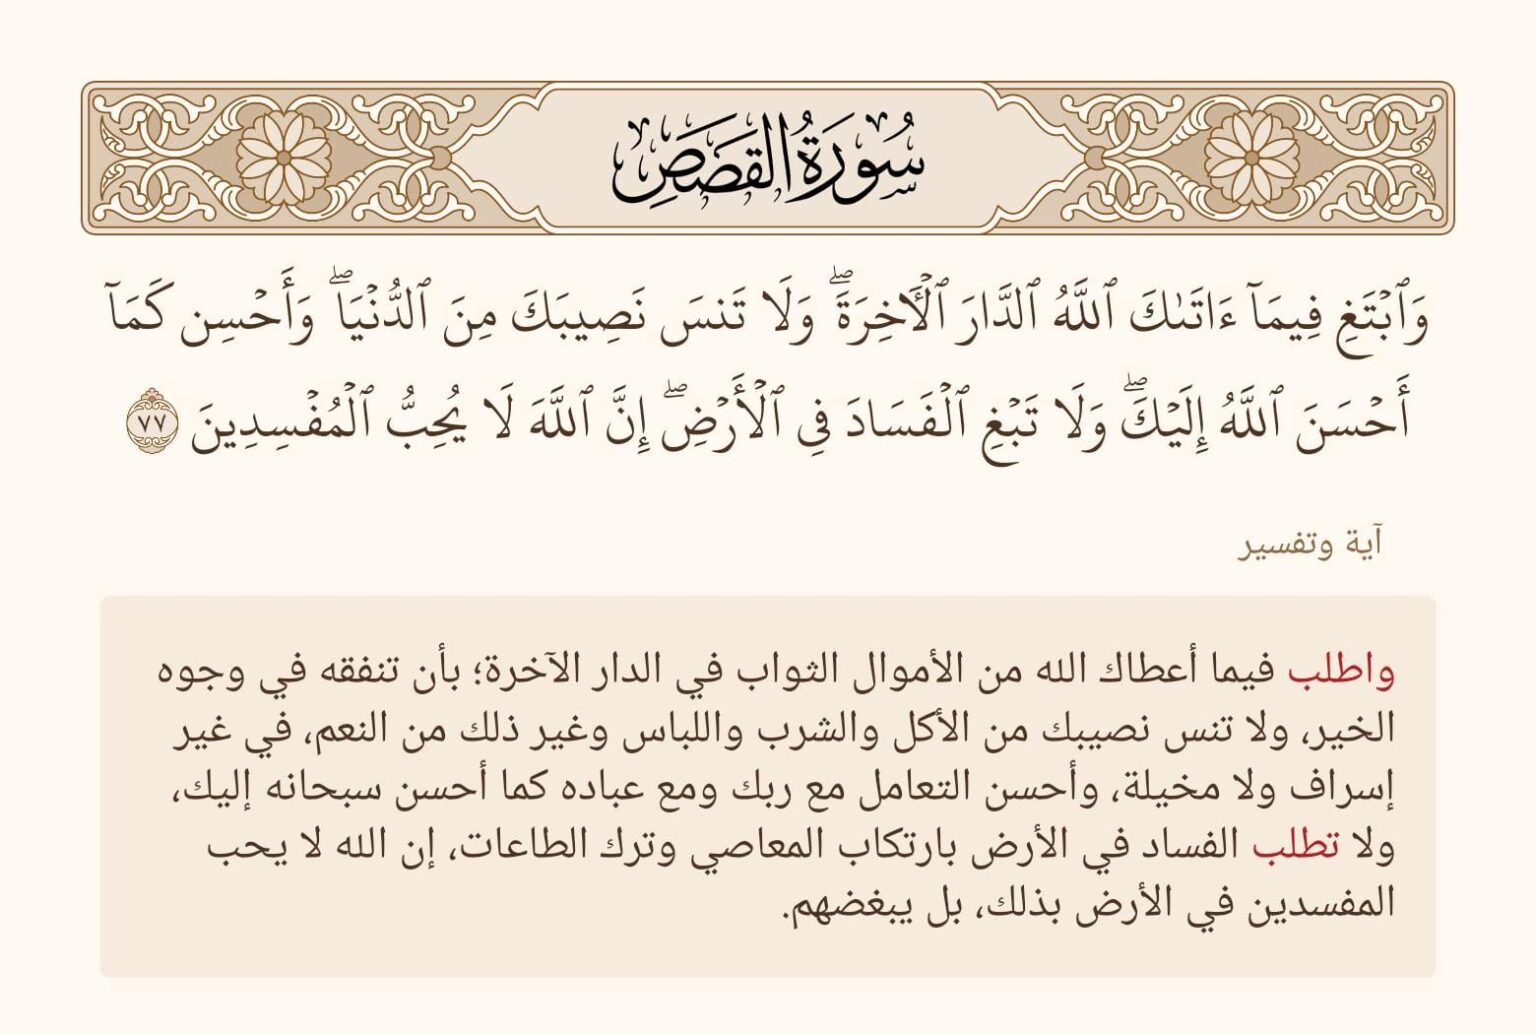 سُورَةُ القَصَصِ
وَٱبۡتَغِ فِيمَآ ءَاتَىٰكَ ٱللَّهُ ٱلدَّارَ ٱلۡأٓخِرَةَۖ وَلَا تَنسَ نَصِيبَكَ مِنَ ٱلدُّنۡيَاۖ وَأَحۡسِن كَمَآ
أَحۡسَنَ ٱللَّهُ إِلَيۡكَۖ وَلَا تَبۡغِ ٱلۡفَسَادَ فِي ٱلۡأَرۡضِۖ إِنَّ ٱللَّهَ لَا يُحِبُّ ٱلۡمُفۡسِدِينَ ٧٧
آية وتفسير
واطلب فيما أعطاك الله من الأموال الثواب في الدار الآخرة؛ بأن تنفقه في وجوه
الخير، ولا تنس نصيبك من الأكل والشرب واللباس وغير ذلك من النعم، في غير
إسراف ولا مخيلة، وأحسن التعامل مع ربك ومع عباده كما أحسن سبحانه إليك،
ولا تطلب الفساد في الأرض بارتكاب المعاصي وترك الطاعات، إن الله لا يحب
المفسدين في الأرض بذلك، بل يبغضهم.